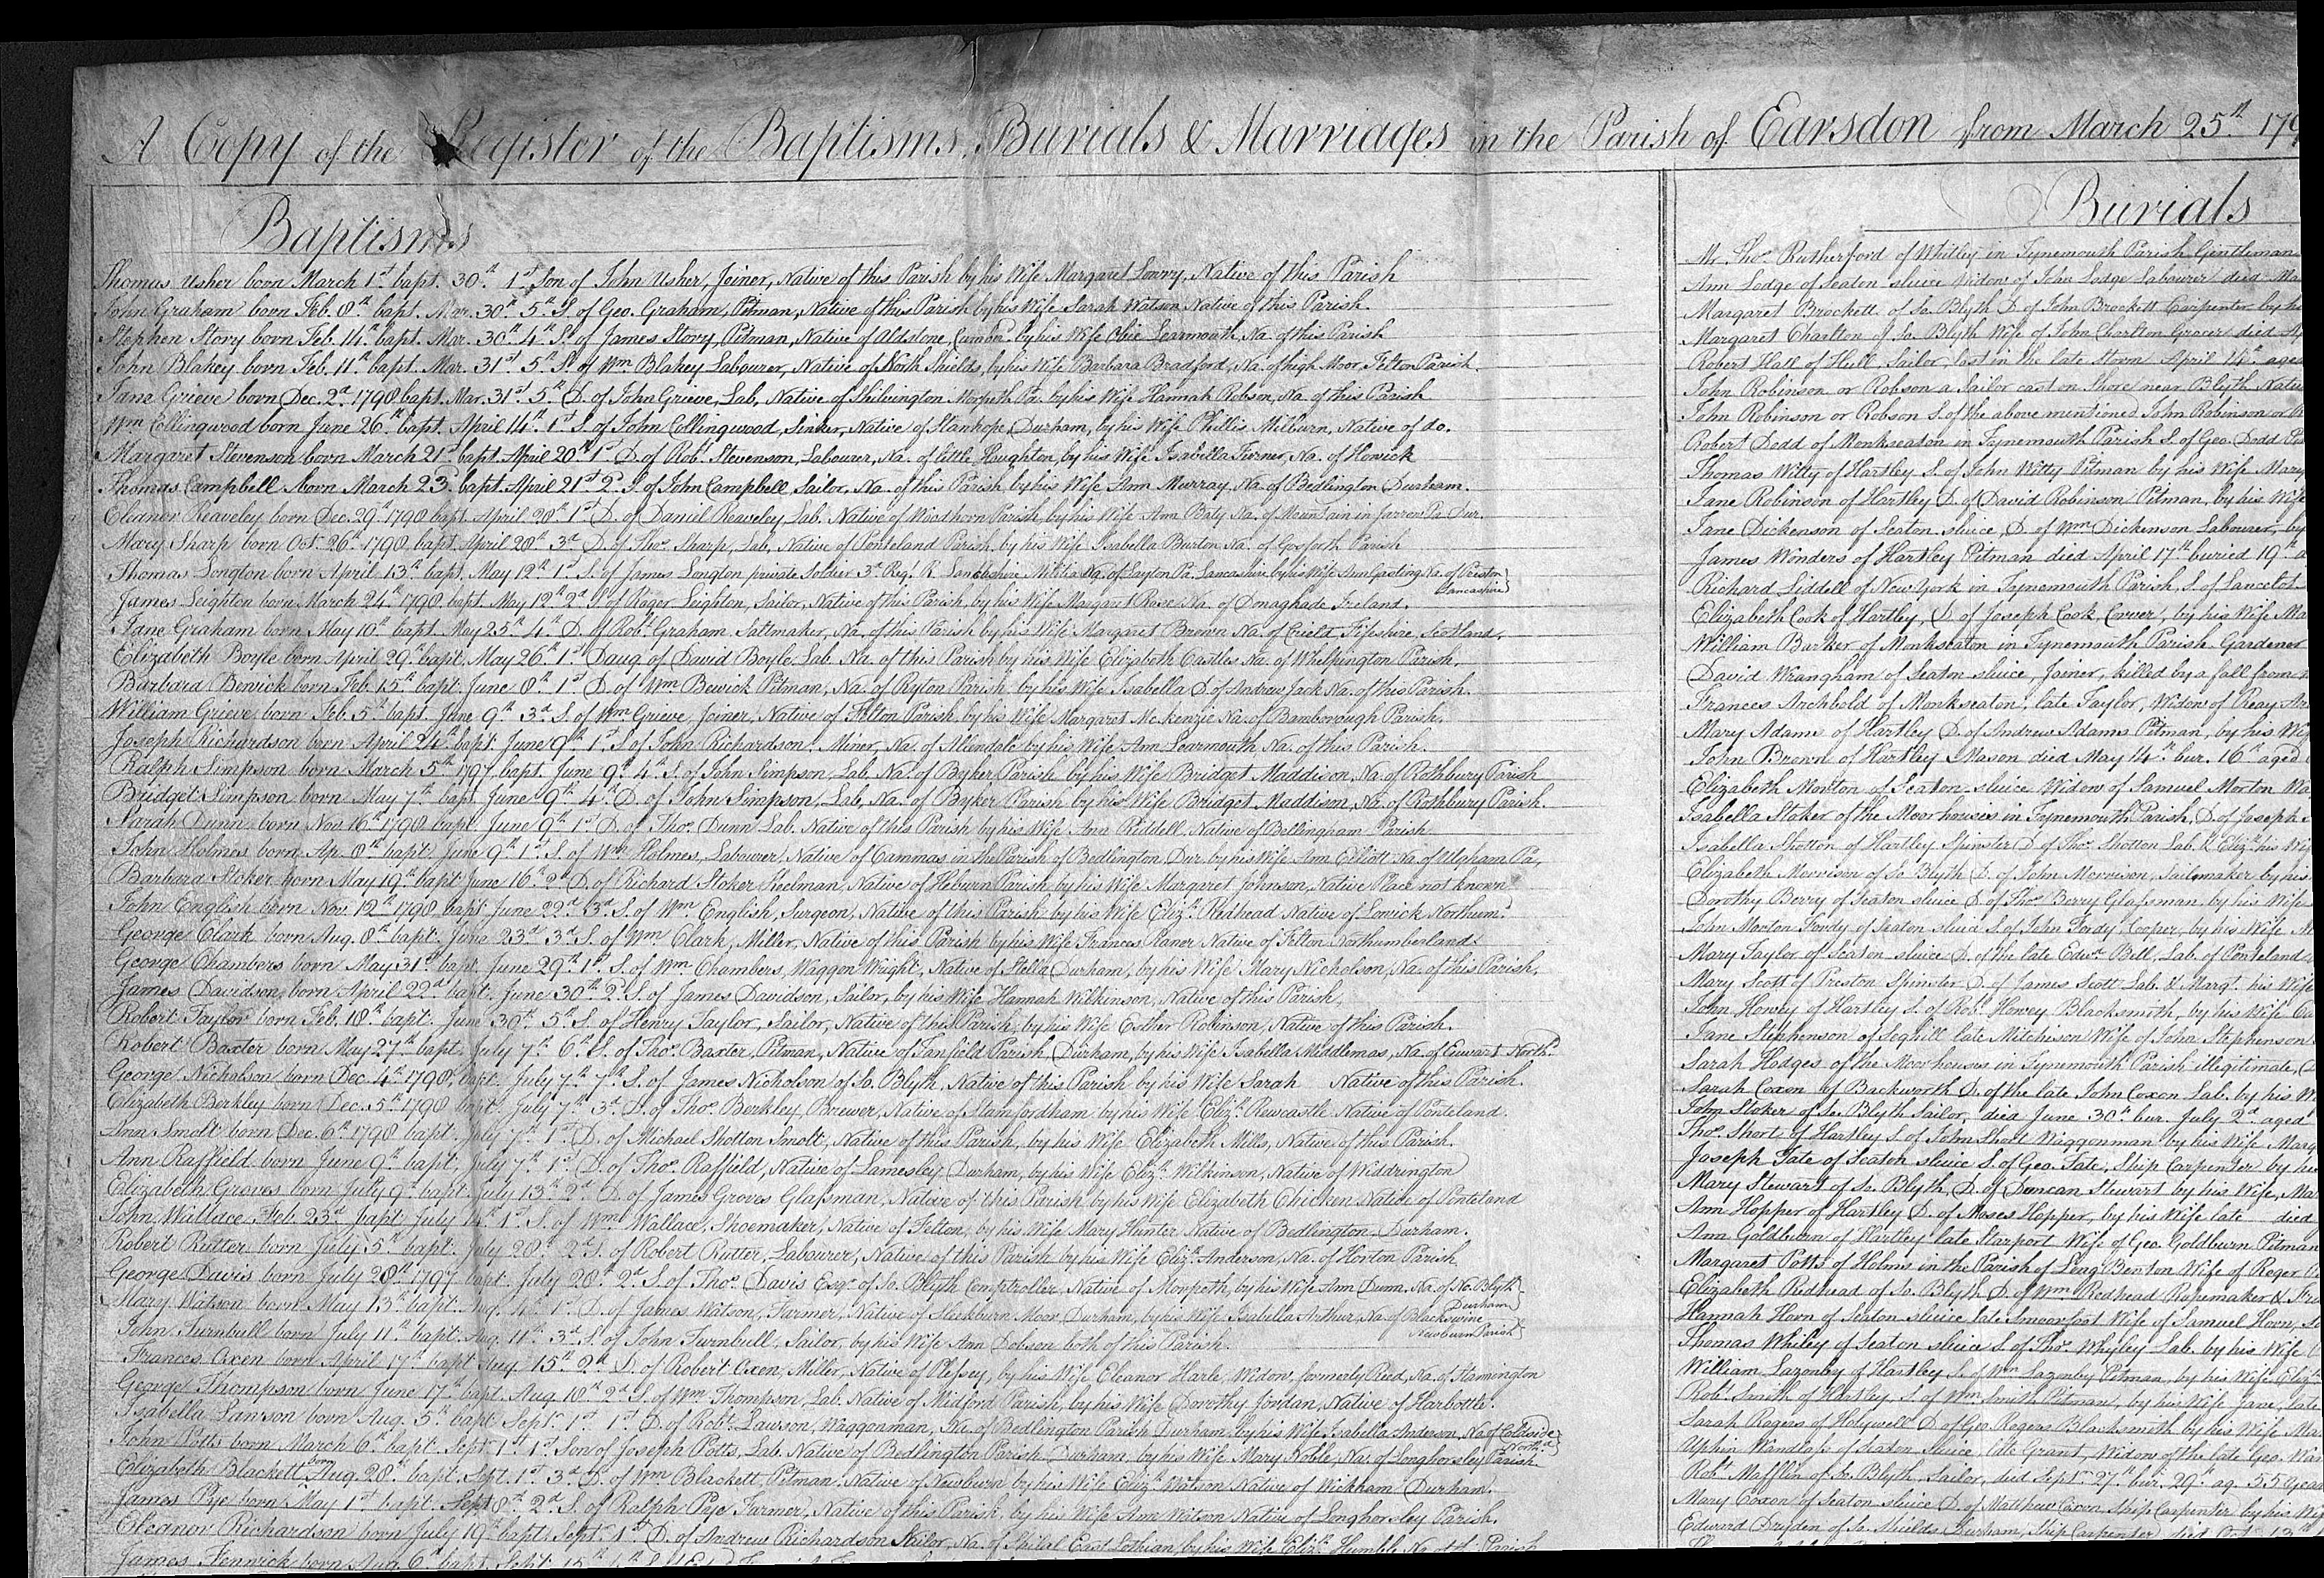 A Copy of the Register of the Baptisms, Burials & Marriages in the Parish of Earsdon from March 25th 179
Baptisms
Thomas Usher born March 1st bapt. 30th 1st Son of John Usher, Joiner, Native of this Parish by his Wife Margaret Lowry, Native of this Parish
John Graham born Feb. 8th bapt. Mar. 30th 5th S. of Geo. Graham, Pitman, Native of this Parish by his Wife Sarah Watson Native of this Parish.
Stephen Story born Feb. 14th bapt. Mar. 30th 4th S. of James Story, Pitman, Native of Aldstone, by his Wife Learmouth, Na. of this Parish
John Blakey born Feb. 11th bapt. Mar. 31st 5th S. of Wm Blakey Labourer, Native of North Shields, by his Wife Barbara Bradford, Na. of high Moor Felton Parish.
Jane Grieve born Dec. 2d 1798 bapt. Mar. 31st 5th D. of John Grieve, Lab, Native of Shilvington Morpeth Pa. by his Wife Hannah Robson, Na. of this Parish
Wm Collingwood born June 26th bapt. April 14th 1st S. of John Collingwood, Sinker, Native of Stanhope, Durham, by his Wife Phillis Milburn, Native of do.
Margaret Stevenson born March 21st bapt. April 20th 1st D. of Robt Stevenson, Labourer, Na. of little Houghton, by his Wife Isabella Turner, Na. of Howick
Thomas Campbell born March 23d bapt. April 21st 2d S. of John Campbell, Sailor, Na. of this Parish by his Wife Ann Murray, Na. of Bedlington Durham.
Eleanor Reaveley born Dec. 29th 1798 bapt. April 28th 1st D. of Daniel Reaveley Lab. Native of Woodhorn Parish, by his Wife Ann Baty Na. of in Jarrow Pa. Dur.
Mary Sharp born Oct. 26th 1798 bapt. April 28th 3d D. of Thos Sharp, Lab, Native of Ponteland Parish, by his Wife Isabella Burton Na. of Gosforth Parish
Thomas Longton born April 13th bapt. May 12th 1st S. of James Longton private Soldier 3d Regt R. Lancashire Militia Na. of Layton Pa. Lancashire, by his Wife Ann Gasting Na. of Preston Lancashire
James Leighton born March 24th 1798 bapt. May 12th 2d S. of Roger Leighton, Sailor, Native of this Parish, by his Wife Margaret Rose Na. of Donaghade Ireland.
Jane Graham born May 10th bapt. May 25th 4th D. of Robt Graham Saltmaker, Na. of this Parish by his Wife Margaret Brown Na. of Fifeshire, Scotland.
Elizabeth Boyle born April 29th bapt. May 26th 1st Daug. of David Boyle, Lab. Na. of this Parish by his Wife Elizabeth Castles Na. of Whelpington Parish.
Barbara Bewick born Feb. 15th bapt. June 8th 1st D. of Wm Bewick Pitman, Na. of Ryton Parish by his Wife Isabella D. of Andrew Jack Na. of this Parish.
William Grieve born Feb. 5th bapt. June 9th 3d S. of Wm Grieve, Joiner, Native of Felton Parish by his Wife Margaret McKenzie Na. of Bamborough Parish.
Joseph Richardson born April 24th bapt. June 9th 1st S. of John Richardson, Miner, Na. of Allendale by his Wife Ann Learmouth Na. of this Parish.
Ralph Simpson born March 5th 1797 bapt. June 9th 4th S. of John Simpson, Lab, Na. of Byker Parish by his Wife Bridget Maddison, Na. of Rothbury Parish
Bridget Simpson born May 7th bapt. June 9th 4th D. of John Simpson, Lab, Na. of Byker Parish by his Wife Bridget Maddison, Na. of Rothbury Parish.
Sarah Dunn born Nov. 16th 1798 bapt. June 9th 1st D. of Thos Dunn Lab. Native of this Parish by his Wife Ann Riddell, Native of Bellingham Parish
John Holmes born Ap. 8th bapt. June 9th 1st S. of Wm Holmes, Labourer, Native of Cammas in the Parish of Bedlington Dur. by his Wife Ann Elliott Na. of Ulgham Pa.
Barbara Stoker born May 19th bapt. June 16th 2d D. of Richard Stoker Keelman, Native of Heburn Parish by his Wife Margaret Johnson, Native Place not known
John English born Nov. 12th 1798 bapt. June 22d 3d S. of Wm English, Surgeon, Native of this Parish by his Wife Elizth Redhead Native of Lowick Northumd
George Clark born Aug. 8th bapt. June 23d 3d S. of Wm Clark, Miller, Native of this Parish by his Wife Frances Raner Native of Felton Northumberland.
George Chambers born May 31st bapt. June 29th 1st S. of Wm Chambers, Waggon Wright, Native of Stella Durham, by his Wife Mary Nicholson, Na. of this Parish.
James Davidson born April 22d bapt. June 30th 2d S. of James Davidson, Sailor, by his Wife Hannah Wilkinson, Native of this Parish,
Robert Taylor born Feb. 18th bapt. June 30th 5th S. of Henry Taylor, Sailor, Native of this Parish, by his Wife Esther Robinson, Native of this Parish.
Robert Baxter born May 27th bapt. July 7th 6th S. of Thos Baxter, Pitman, Native of Tanfield Parish Durham, by his Wife Isabella Middlemas, Na. of Ewart North.
George Nicholson born Dec. 4th 1798, bapt. July 7th 7th S. of James Nicholson of So. Blyth, Native of this Parish by his Wife Sarah Native of this Parish.
Elizabeth Berkley born Dec. 5th 1798 bapt. July 7th 3d D. of Thos Berkley, Brewer, Native of Stamfordham by his Wife Elizth Rewcastle Native of Ponteland.
Ann Smolt born Dec. 6th 1798 bapt. July 7th 1st D. of Michael Shotton Smolt, Native of this Parish, by his Wife Elizabeth Mills, Native of this Parish.
Ann Raffield born June 9th bapt. July 7th 1st D. of Thos Raffield, Native of Lamesley Durham, by his Wife Elizth Wilkinson, Native of Widdrington
Elizabeth Groves born July 9th bapt. July 13th 2d D. of James Groves Glassman, Native of this Parish by his Wife Elizabeth Chicken Native of Ponteland
John Wallace Feb. 23d bapt. July 14th 1st S. of Wm Wallace, Shoemaker, Native of Felton, by his Wife Mary Hunter Native of Bedlington Durham.
Robert Rutter born July 5th bapt. July 20th 2d S. of Robert Rutter, Labourer, Native of this Parish by his Wife Elizth Anderson, Na. of Horton Parish.
George Davis born July 28th 1797 bapt. July 28th 2d S. of Thos Davis Esqr of So. Blyth Comptroller, Native of Morpeth, by his Wife Ann Dunn, Na. of No. Blyth Durham
Mary Watson born May 13th bapt. Aug. 11th 1st D. of James Watson, Farmer, Native of Sleekburn Moor, Durham, by his Wife Isabella Arthur Na. of Blackswine Newburn Parish
John Turnbull born July 11th bapt. Aug. 11th 3d S. of John Turnbull, Sailor, by his Wife Ann Dobson both of this Parish.
Frances Oxen born April 17th bapt. Aug. 15th 2d D. of Robert Oxen, Miller, Native of Plessey, by his Wife Eleanor Harle, Widow, formerly Reed, Na. of Hamington
George Thompson born June 17th bapt. Aug. 18th 2d S. of Wm Thompson, Lab. Native of Midford Parish, by his Wife Dorothy Jordan, Native of Harbottle.
Isabella Lawson born Aug. 5th bapt. Septr 1st 1st D. of Robt Lawson, Waggonman, Na. of Bedlington Parish Durham, by his Wife Isabella Anderson, Na. of Coldside Northd
John Potts born March 6th bapt. Septr 1st 1st Son of Joseph Potts, Lab. Native of Bedlington Parish Durham, by his Wife Mary Noble, Na. of Longhorsley Parish
Elizabeth Blackett born Aug. 20th bapt. Sept. 1st 3d D. of Wm Blackett, Pitman, Native of Newburn by his Wife Elizth Watson Native of Wickham Durham.
James Pye born May 1st bapt. Sept 8th 2d S. of Ralph Pye Farmer, Native of this Parish, by his Wife Ann Watson Native of Longhorsley Parish.
Eleanor Richardson born July 19th bapt. Sept. 1st D. of Andrew Richardson Sailor, Na. of East Lothian, by his Wife Elizth Humble Na. of this Parish
James Fenwick born Aug. 6th bapt. Septr 15th
Burials
Mr Thos Rutherford of Whitley in Tynemouth Parish Gentleman
Ann Lodge of Seaton sluice Widow of John Lodge Labourer died Ma
Margaret Brockett of So. Blyth D. of John Brockett Carpenter by hi
Margaret Charlton of So. Blyth Wife of John Charlton Grocer died Ap
Robert Hall of Hull, Sailor, lost in the late storm April 14th aged
John Robinson or Robson a Sailor cast on Shore near Blyth Nativ
John Robinson or Robson S. of the above mentioned John Robinson or R
Robert Dodd of Monkseaton in Tynemouth Parish S. of Geo. Dodd
Thomas Witty of Hartley S. of John Witty Pitman by his Wife Mary
Jane Robinson of Hartley D. of David Robinson Pitman, by his Wife
Jane Dickenson of Seaton sluice, D. of Wm Dickenson Labourer, by
James Wonders of Hartley Pitman died April 17th buried 19th a
Richard Liddell of New York in Tynemouth Parish S. of Lancelot
Elizabeth Cook of Hartley, D. of Joseph Cook, Corver, by his Wife Ma
William Barker of Monkseaton in Tynemouth Parish, Gardener
David Wrangham of Seaton sluice, Joiner, killed by a fall from
Frances Archbold of Monkseaton, late Taylor, Widow of Reay Ar
Mary Adams of Hartley D. of Andrew Adams Pitman, by his Wif
John Brown of Hartley Mason died May 14th bur. 16th aged
Elizabeth Morton of Seaton sluice Widow of Samuel Morton Wa
Isabella Stoker of the Moorhouses in Tynemouth Parish, D. of Joseph
Isabella Shotton of Hartley Spinster D. of Thos Shotton Lab. & Elizth his Wif
Elizabeth Morrison of So Blyth D. of John Morrison, Sailmaker by his
Dorothy Berry of Seaton sluice D. of Thos Berry Glassman by his Wife
John Morton Fordy of Seaton sluice S. of John Fordy Cooper, by his Wife
Mary Taylor of Seaton sluice D. of the late Edwd Bell, Lab. of Ponteland
Mary Scott of Preston Spinster D. of James Scott Lab. & Margt his Wife
John Howey of Hartley S. of Robt Howey Blacksmith, by his Wife
Jane Stephenson of Seghill late Mitcheson Wife of John Stephenson
Sarah Hodges of the Moorhouses in Tynemouth Parish illegitimate,
Sarah Coxon of Backworth D. of the late John Coxon Lab. by his W
John Stoker of So. Blyth Sailor, died June 30th bur. July 2d aged
Thos Short of Hartley S. of John Short Waggonman by his Wife Marg
Joseph Tate of Seaton sluice S. of Geo. Tate, Ship Carpenter by his
Mary Stewart of So. Blyth, D. of Duncan Stewart by his Wife, Ma
Ann Hopper of Hartley D. of Moses Hopper, by his Wife late died
Ann Goldburn of Hartley late Starport Wife of Geo. Goldburn Pitman
Margaret Potts of Holms in the Parish of Long Benton Wife of Roger
Elizabeth Redhead of So. Blyth D. of Wm Redhead Ropemaker &
Hannah Horn of Seaton sluice late Smoorfoot Wife of Samuel Horn,
Thomas Whiley of Seaton sluice S. of Thos Whyley Lab. by his Wife
William Lazenby of Hartley S. of Wm Lazenby Pitman, by his Wife Elizth
Robt Smith of Hartley S. of Wm Smith Pitman, by his Wife Jane, late
Sarah Rogers of Holywell D. of Geo Rogers Blacksmith by his Wife Ma
Wandlass of Seaton sluice late Grant, Widow of the late Geo. Wan
Robt Mafflin of So. Blyth, Sailor, died Septr 27th bur. 29th ag. 55 years
Mary Coxon of Seaton sluice D. of Matthew Coxon Ship Carpenter by his Wif
Edward Dryden of So. Shields Durham, Ship Carpenter died Octr 13th